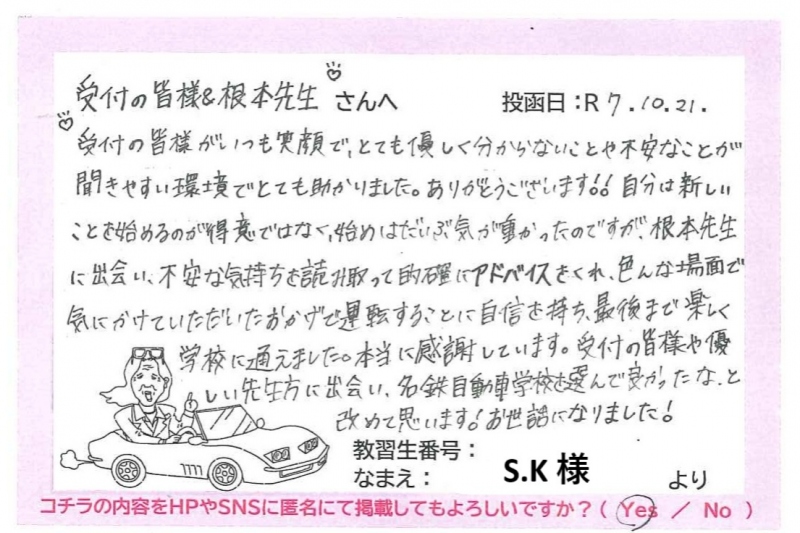 受付の皆様&根本先生♡ さんへ 投函日:R7.10.21.
♡受付の皆様がいつも笑顔で、とても優しく分からないことや不安なことが
聞きやすい環境でとても助かりました。ありがとうございます!! 自分は新しい
ことを始めるのが得意ではなく、始めはだいぶ気が重かったのですが、根本先生
に出会い、不安な気持ちを読み取って的確にアドバイスをくれ、色んな場面で
気にかけていただいたおかげで運転することに自信を持ち、最後まで楽しく
学校に通えました。本当に感謝しています。受付の皆様や優
しい先生方に出会い、名鉄自動車学校を選んで良かったな、と
改めて思います!お世話になりました!
教習生番号:
なまえ: S.K 様 より
コチラの内容をHPやSNSに匿名にて掲載してもよろしいですか?( Yes / No )